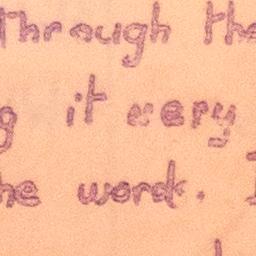 through the
g it very
he work. I